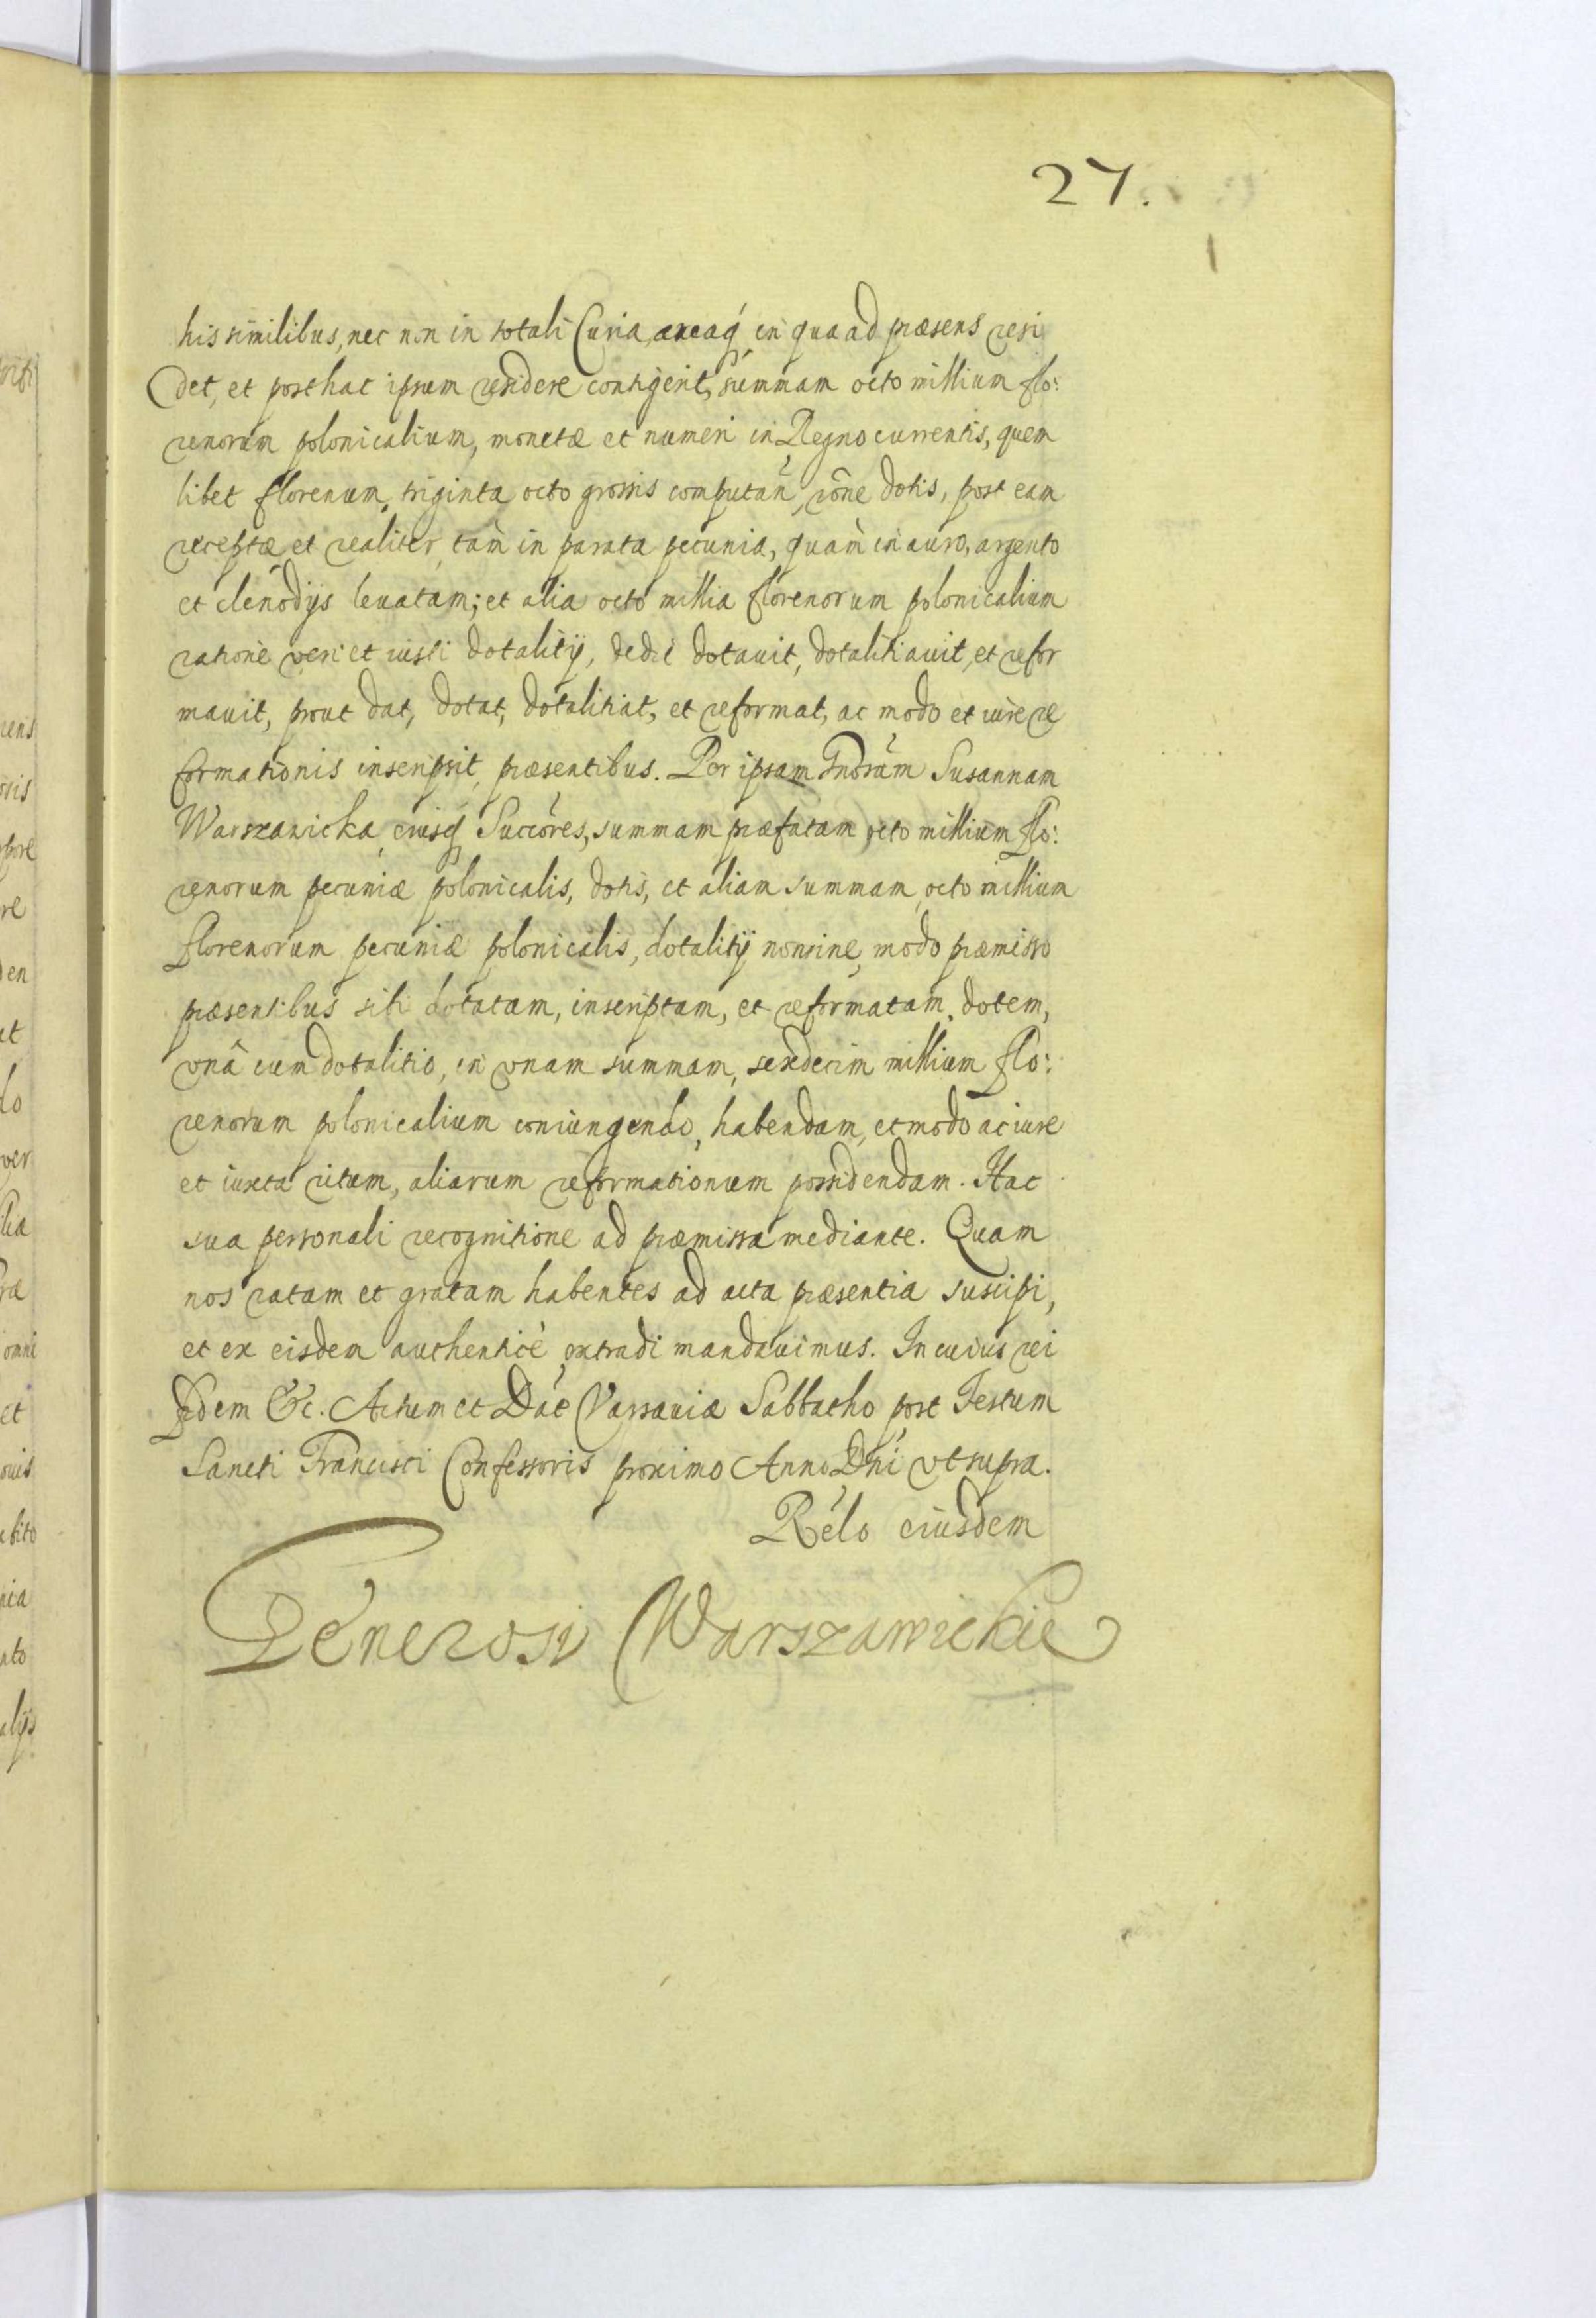 27.
his similibus, nec non in totali Curia, areaq́ in qua ad præsens resi
det, et posthac ipsum residere contigerit, summam octo millium flo:
renorum polonicalium, monetæ et numeri in Regno currentis, quem
libet florenum, triginta octo grossis computañ, rõne dotis, post eam
receptæ et realiter, tam̀ in parata pecunia, quam̀ in auro, argento
et clenodijs levatam; et alia octo millia florenorum polonicalium
ratione veri et iusti dotalitij, dedit dotauit, dotalitiauit, et refor
mauit, prout dat, dotat, dotalitiat, et reformat, ac modo et iure re
formationis inscripsit, præsentibus. Per ipsam Gnõsam Susannam
Warszawicka, eiusq́ Succõres, summam præfatam octo millium flo:
renorum pecuniæ polonicalis, dotis, et aliam summam octo millium
florenorum pecuniæ polonicalis, dotalitij nomine, modo præmisso
præsentibus sibi dotatam, inscriptam, et reformatam, dotem,
vnâ cum dotalitio, in vnam summam, sexdecim millium flo:
renorum polonicalium coniungendo, habendam, et modo ac iure
et iuxta ritum, aliarum reformationum possidendam. Hac
sua personali recognitione ad præmissa mediante. Quam
nos ratam et gratam habentes ad acta præsentia suscipi,
et ex eisdem authenticè extradi mandauimus. In cuius rei
fidem &c. Actum et Dat́ Varsauiæ Sabbatho post Festum
Sancti Francisci Confessoris proximo Anno Dñi vt supra.
Rélo eiusdem
Generosi Warszawickie